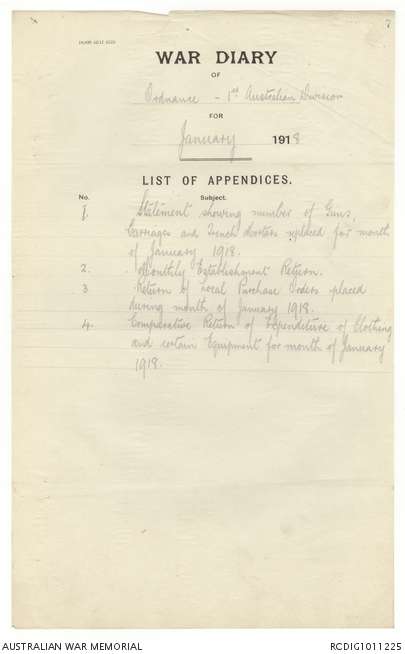 7
WAR DIARY
OF
Ordnance - 1st Australian Division
FOR
January 1918
LIST OF APPENDICES.
No. Subject.
1. Statement showing number of Guns,
Carriages and Trench Mortars replaced for month
of January 1918.
2. Monthly Establishment Return.
3 Return of Local Purchase Orders placed
during month of January 1918.
4. Comparative Return of Expenditure of Clothing
and certain Equipment for month of January
1918.
AUSTRALIAN WAR MEMORIAL
RCDIG1011225